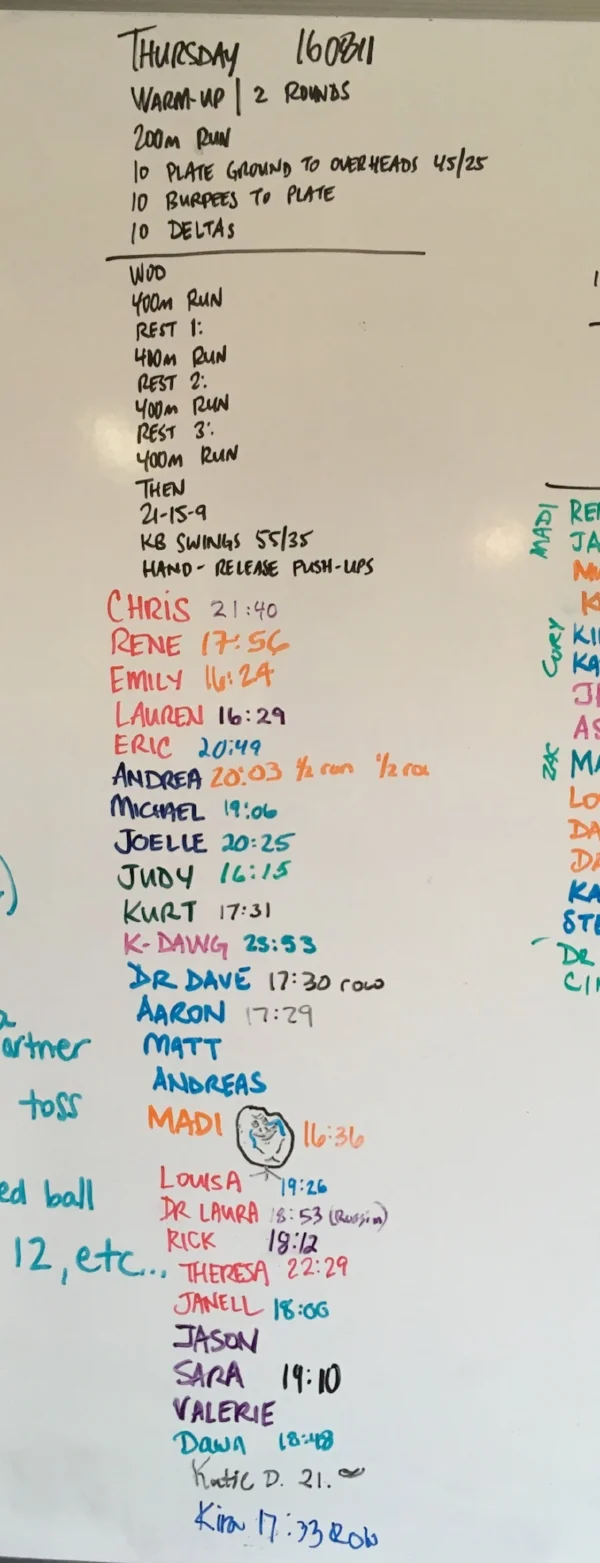 THURSDAY 160811
WARM-UP | 2 ROUNDS
200m RUN
10 PLATE GROUND TO OVERHEADS 45/25
10 BURPEES TO PLATE
10 DELTAS
WOD
400m RUN
REST 1:
400m RUN
REST 2:
400m RUN
REST 3:
400m RUN
THEN
21-15-9
KB SWINGS 55/35
HAND-RELEASE PUSH-UPS
CHRIS 21:40
RENE 17:56
EMILY 16:24
LAUREN 16:29
ERIC 20:49
ANDREA 20:03 1/2 run 1/2 row
MICHAEL 19:06
JOELLE 20:25
JUDY 16:15
KURT 17:31
K-DAWG 23:53
DR DAVE 17:30 row
AARON 17:29
MATT
ANDREAS
MADI 16:36
LOUISA 19:26
DR LAURA 18:53 (Russin)
RICK 18:12
THERESA 22:29
JANELL 18:06
JASON
SARA 19:10
VALERIE
Dawn 18:48
Katie D. 21.
Kira 17:33 Row
artner
toss
ed ball
12, etc...
MADI
CORY
ZAC
JA
KI
KA
AS
MA
LO
DA
DA
KA
STE
DR
CIN